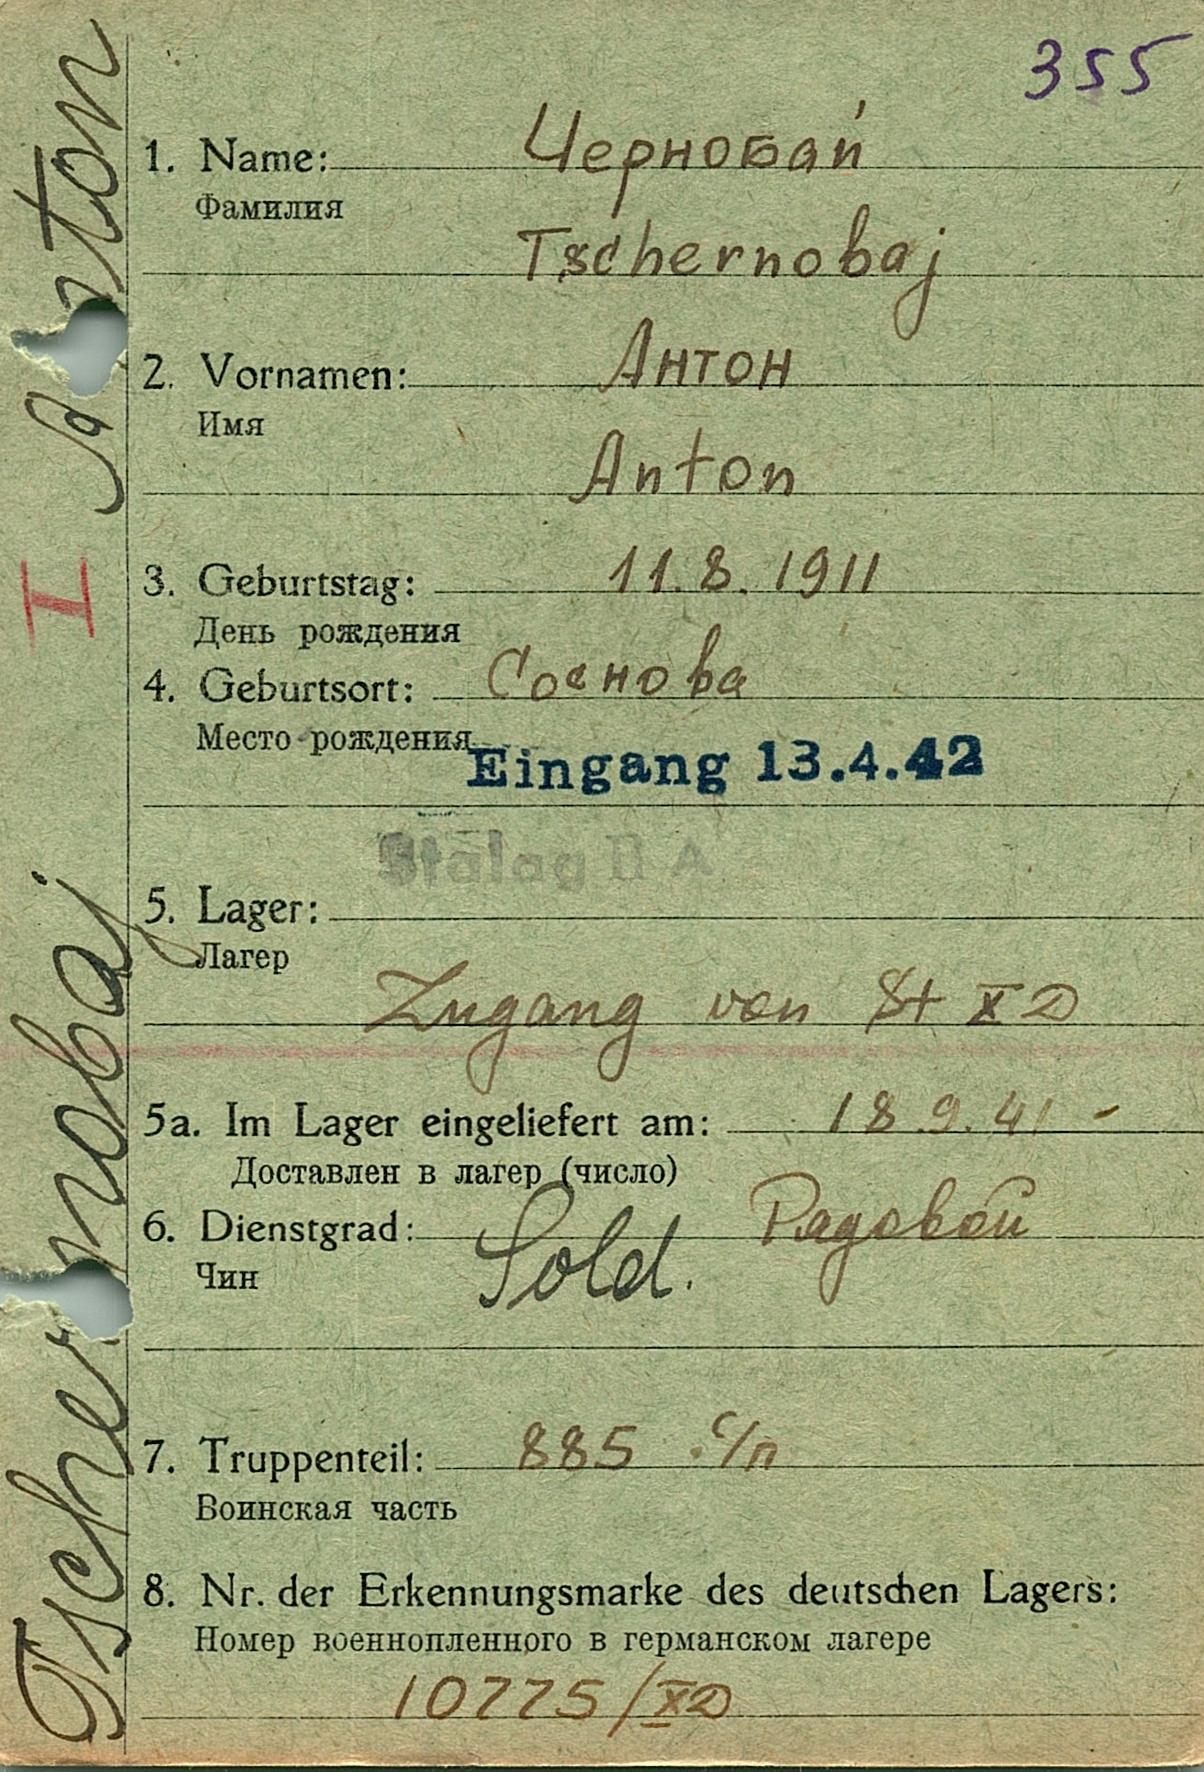 355
1. Name: Чернобай
Фамилия
Tschernobaj
2. Vornamen: Антон
Имя
Anton
3. Geburtstag: 11.8.1911
День рождения
4. Geburtsort: Соснова
Место рождения
Eingang 13.4.42
Stalag II A
5. Lager:
Лагер
Zugang von St XD
5a. Im Lager eingeliefert am: 18.9.41 -
Доставлен в лагер (число)
6. Dienstgrad: Sold. Рядовой
Чин
7. Truppenteil: 885 с/п
Воинская часть
8. Nr. der Erkennungsmarke des deutschen Lagers:
Номер военнопленного в германском лагере
10775/XD
Tschernobaj I Anton